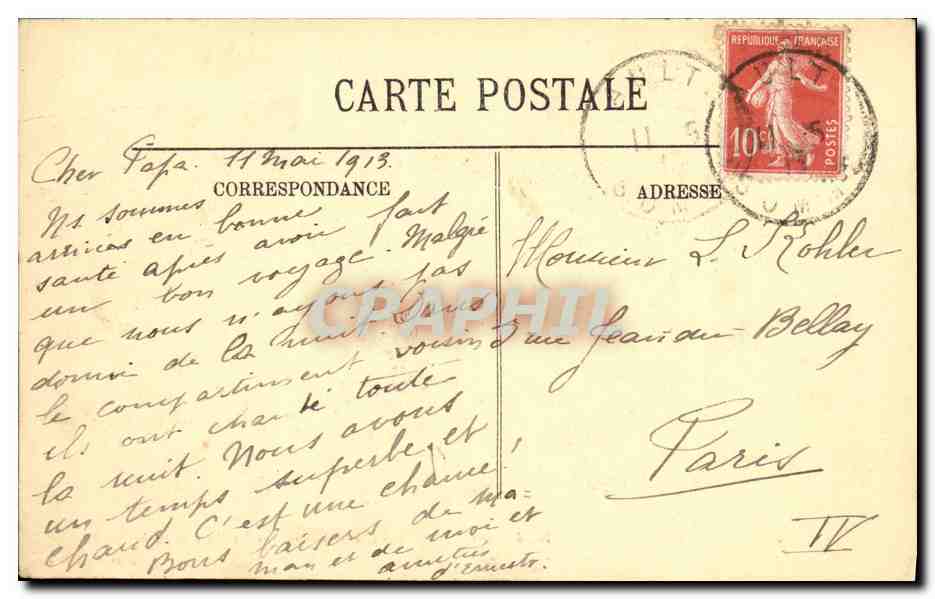 CARTE POSTALE
REPUBLIQUE FRANÇAISE
10c
POSTES
AULT
11 5
SOMME
AULT
5
SOMME
CORRESPONDANCE
ADRESSE
Cher Papa. 11 Mai 1913.
Ns sommes
arrivés en bonne
santé après avoir fait
un bon voyage. Malgré
que nous n'ayons pas
dormi de la nuit. Dans
le compartiment voisin
ils ont chanté toute
la nuit. Nous avons
un temps superbe et
chaud. C'est une chance!
Bons baisers de Ma=
man et de moi et
amitiés
d'Ernesto.
Monsieur L. Köhler
3 rue Jean du Bellay
Paris
IV
CPAPHIL